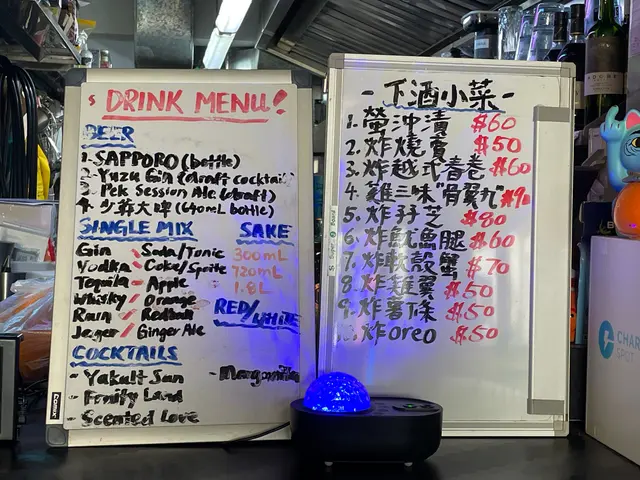 $ DRINK MENU!
BEER
1. SAPPORO (bottle)
2. Yuzu Gin (draft cocktail)
3. Pek Session Ale (draft)
4. 少爺大啤 (640mL bottle)
SINGLE MIX
Gin Soda/Tonic
Vodka Coke/Sprite
Tequila Apple
Whisky Orange
Rum Redbull
Jager Ginger Ale
SAKE
300mL
720mL
1.8L
RED/WHITE
COCKTAILS
- Yakult San
- Fruity Land
- Scented Love
- Margarita
- 下酒小菜 -
1. 螢沖漬 $60
2. 炸燒賣 $50
3. 炸越式春卷 $60
4. 雞三味"骨翼丸" $90
5. 炸孖芝 $80
6. 炸魷魚腿 $60
7. 炸軟殼蟹 $70
8. 炸雞翼 $50
9. 炸薯條 $50
炸oreo $50
CHAR